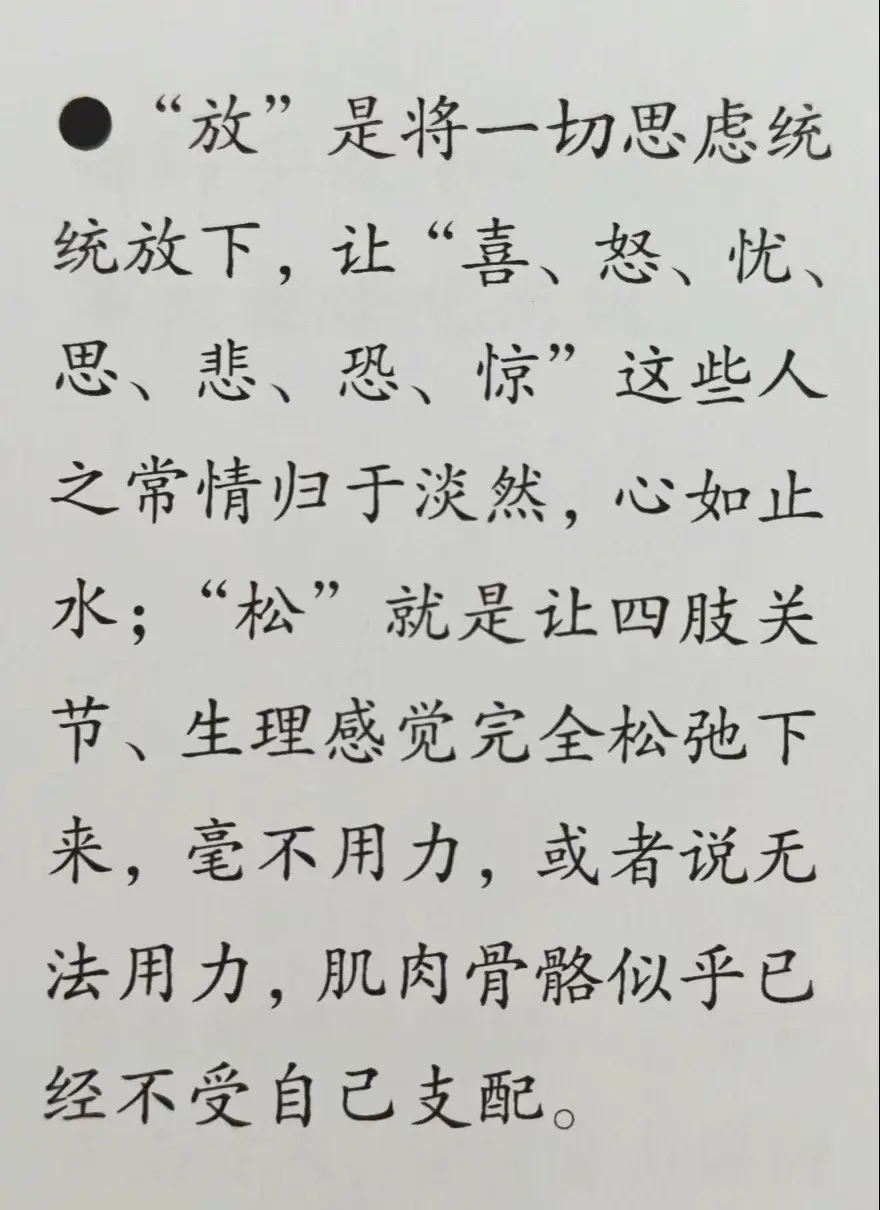 ●“放”是将一切思虑统
统放下，让“喜、怒、忧、
思、悲、恐、惊”这些人
之常情归于淡然，心如止
水；“松”就是让四肢关
节、生理感觉完全松弛下
来，毫不用力，或者说无
法用力，肌肉骨骼似乎已
经不受自己支配。